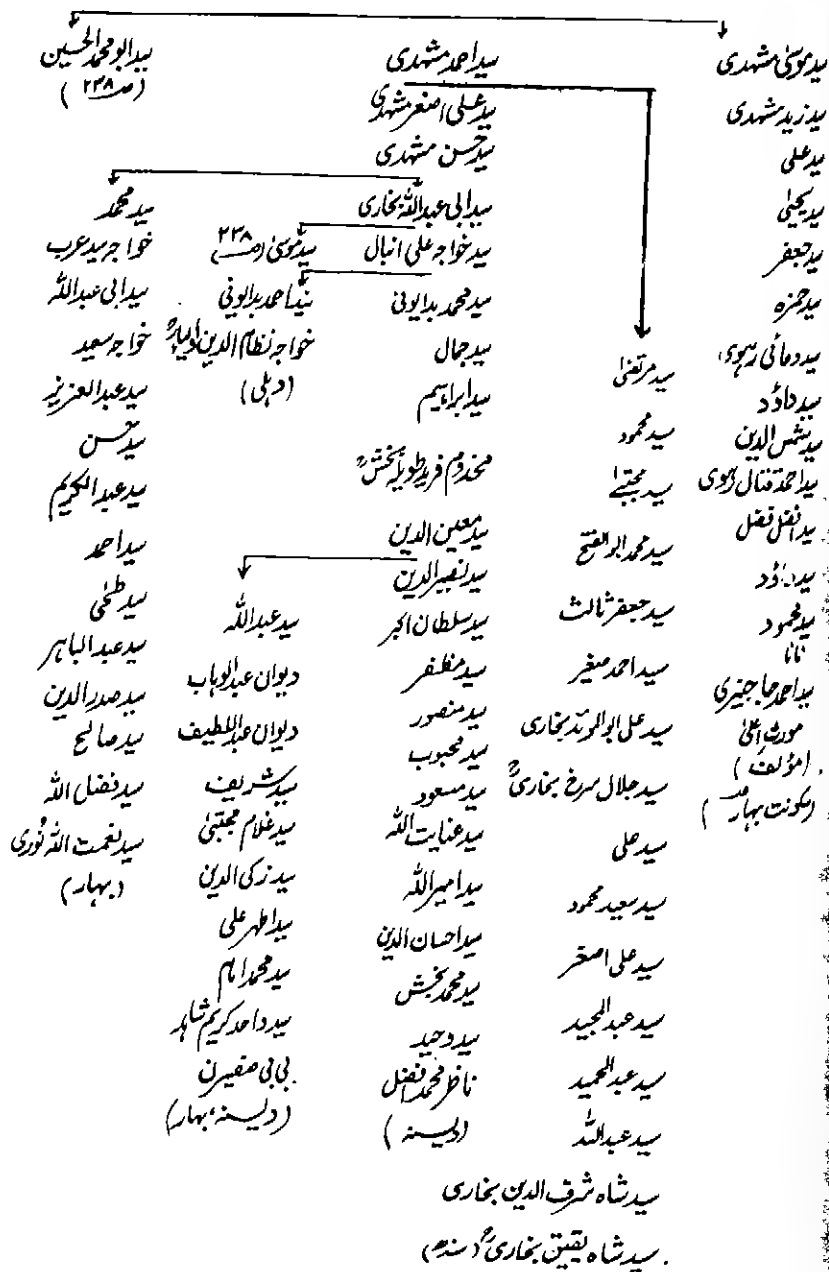 سید موسیٰ مشہدی
سید زید مشہدی
سید علی
سید یحییٰ
سید جعفر
سید حمزہ
سید داؤد
سید شمس الدین
سید احمد قتال
سید افضل
سید داؤد
سید محمود
نانا
سید احمد جاجنیری
مورث اعلیٰ
(مؤلف)
(سکونت بہار)
سید احمد مشہدی
سید علی اصغر مشہدی
سید حسن مشہدی
سید ابی عبداللہ بخاری
سید خواجہ علی انبال
سید محمد بدایونی
سید جمال
سید ابراہیم
مخدوم فرید طویلہ بخشؒ
سید معین الدین
سید نصیر الدین
سید سلطان اکبر
سید مظفر
سید منصور
سید محبوب
سید مسعود
سید عنایت اللہ
سید امیر اللہ
سید احسان الدین
سید محمد بخش
سید وحید
ناظر محمد افضل
(دیسنہ)
سید مرتضیٰ
سید محمود
سید مجتبےٰ
سید محمد ابوالفتح
سید جعفر ثالث
سید احمد صغیر
سید علی ابوالموئد بخاری
سید جلال سرخ بخاریؒ
سید علی
سید سعید محمود
سید علی اصغر
سید عبدالمجید
سید عبدالحمید
سید عبداللہ
سید شاہ شرف الدین بخاری
سید شاہ یقیق بخاریؒ (سندھ)
سید موسیٰ (صـ ۲۳۸)
سید احمد بدایونی
خواجہ نظام الدین اولیاءؒ
(دہلی)
سید عبداللہ
دیوان عبدالوہاب
دیوان عبداللطیف
سید شریف
سید غلام مجتبیٰ
سید زکی الدین
سید اطہر علی
سید محمد امام
سید واحد کریم شاہد
بی بی صغیرن
(دیسنہ، بہار)
سید ابو محمد الحسین
(صـ ۲۳۸)
سید محمد
خواجہ سید عرب
سید ابی عبداللہ
خواجہ سعید
سید عبدالعزیز
سید حسن
سید عبدالکریم
سید احمد
سید طٰحٰی
سید عبدالباہر
سید صدر الدین
سید صالح
سید فضل اللہ
سید نعمت اللہ نوری
(بہار)